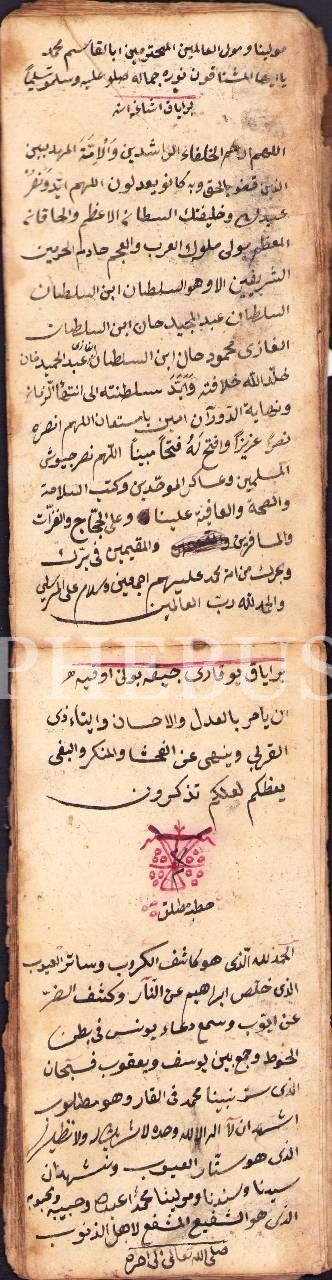 مولينا ومولى العالمين المحترمين ابا القاسم محمد
يا ايها المشتاقون بنوره جماله صلو عليه وسلمو تسليماً
بر اياق اشاغه اينه
اللهم ارحم الخلفاء الراشدين والائمة المهديين
الذين قضو بالحق وبه كانو يعدلون اللهم ايد وانصر
عبدك وخليفتك السطان الاعظم والخاقان
المعظم مولى ملوك العرب والعجم خادم الحرمين
الشريفين الا وهو السلطان ابن السلطان
السلطان عبد المجيد خان ابن السلطان
الغازى محمود خان ابن السلطان الغازى عبد الحميد خان
خلد الله خلافته وأبد سلطنته الى انتهاء الزمان
ونهاية الدوران امين يا مستعان اللهم انصره
نصراً عزيزاً وافتح له فتحاً مبيناً اللهم نصر جيوش
المسلمين وعساكر الموحدين وكتب السلامة
والصحة والعافية علينا وعلى الحجاج والغزات
والمسافرين والمقيمين فى برك
وبحرك من امة محمد عليهم اجمعين وسلام على المرسلين
والحمد لله رب العالمين
PHEBUS
بر اياق يوقارى چيقه بونى اوقيه
ان يامر بالعدل والاحسان وايتاء ذى
القربى وينهى عن الفحشا والمنكر والبغى
يعظكم لعلكم تذكرون
خطبه مطلق
الحمد لله الذى هو كاشف الكروب وساتر العيوب
الذى خلص ابراهيم عن النار وكشف الضر
عن ايوب وسمع دعاء يونس فى بطن
الحوط وجمع بين يوسف ويعقوب فسبحان
الذى ستر نبينا محمد فى الغار وهو مطلوب
اشهد ان لا اله الا الله وحده لا شريك له ولا نظير لها
الذى هو ستار العيوب ونشهد ان
سيدنا وسندنا ومولينا محمداً عبده وحبيبه ومحبوبه
الذى هو الشفيع المشفع لاهل الذنوب
صلى الله تعالى الى اخره